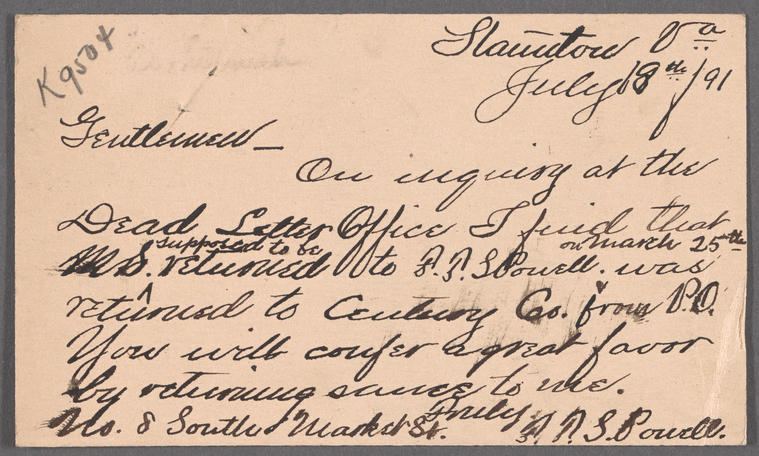 K9504
Staunton Va
July 18th/91
Gentlemen—
On inquiry at the
Dead Letter Office I find that
supposed to be on March 25th
MS. returned to F. P. S. Powell. was
returned to Century Co. from P.O.
You will confer a great favor
by returning same to me.
Truly
No. 8 South Market St. F. P. S. Powell.